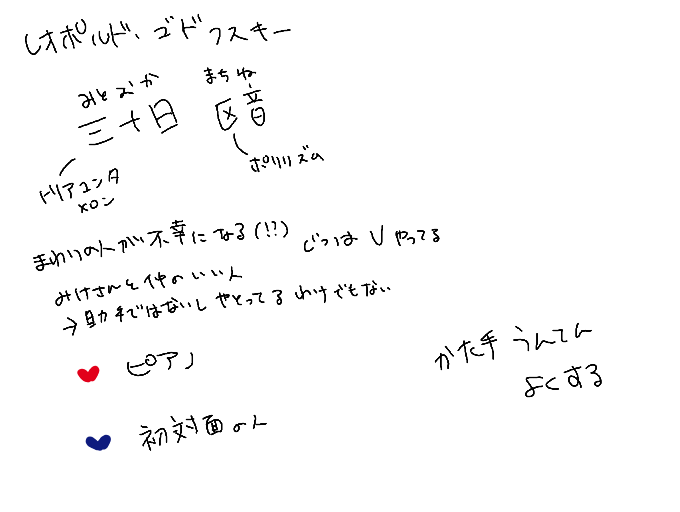 レオポルド・ゴドフスキー
みとおか まちね
三十日 区音
トリアコンタ
メロン
ポリリズム
まわりの人が不幸になる(!?)
じつはVやってる
みけさんと仲のいい人
→助手ではないしやとってるわけでもない
ピアノ
かた手うんてん
よくする
初対面の人